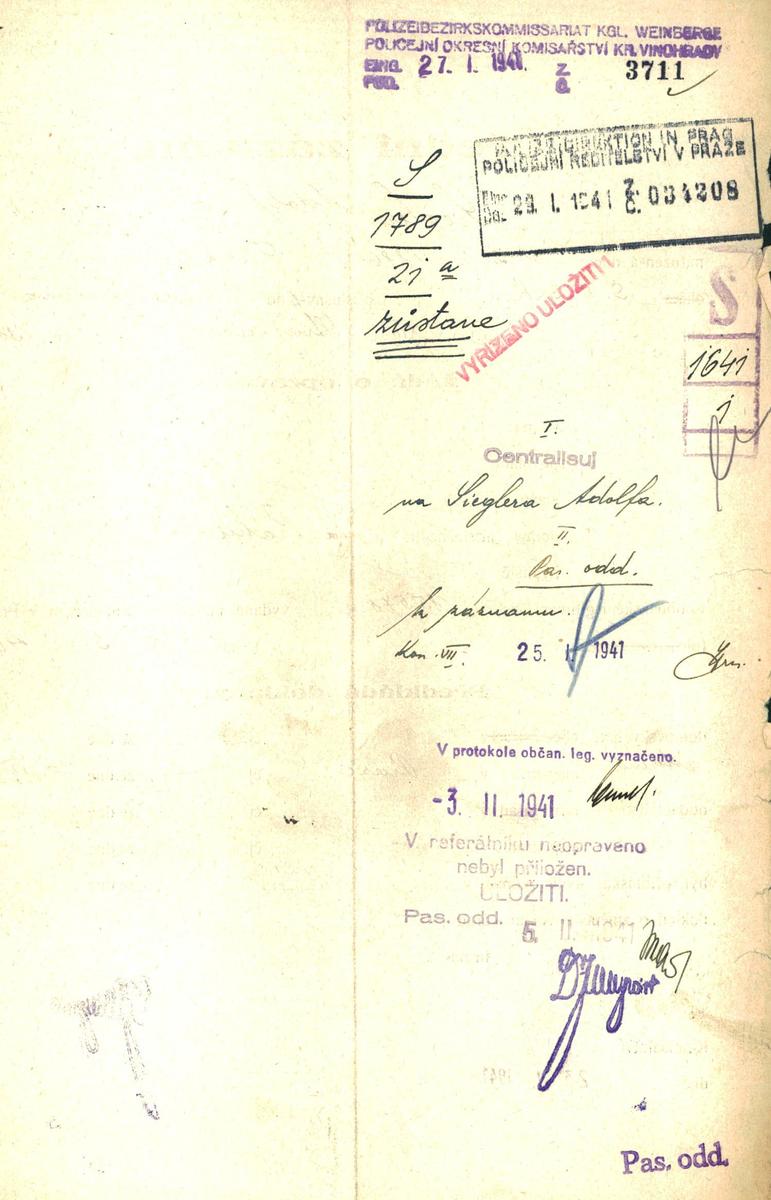 POLIZEIBEZIRKSKOMMISSARIAT KGL. WEINBERGE
POLICEJNÍ OKRESNÍ KOMISAŘSTVÍ KR. VINOHRADY
EING. 27. I. 1941. Z. 3711
POD. Č.
POLIZEIDIREKTION IN PRAG
POLICEJNÍ ŘEDITELSTVÍ V PRAZE
Eing. 29. I. 1941 Z. 034208
Do. Č.
S
1789
21 a
zůstane
VYŘÍZENO ULOŽITI!
S
1641
1
I.
Centralisuj
na Sieglera Adolfa.
II.
Pas. odd.
k záznamu.
Kom. VII. 25. I. 1941
V protokole občan. leg. vyznačeno.
-3. II. 1941
V referátníku neopraveno
nebyl přiložen.
ULOŽITI.
Pas. odd. 5. II. 1941
Pas. odd.